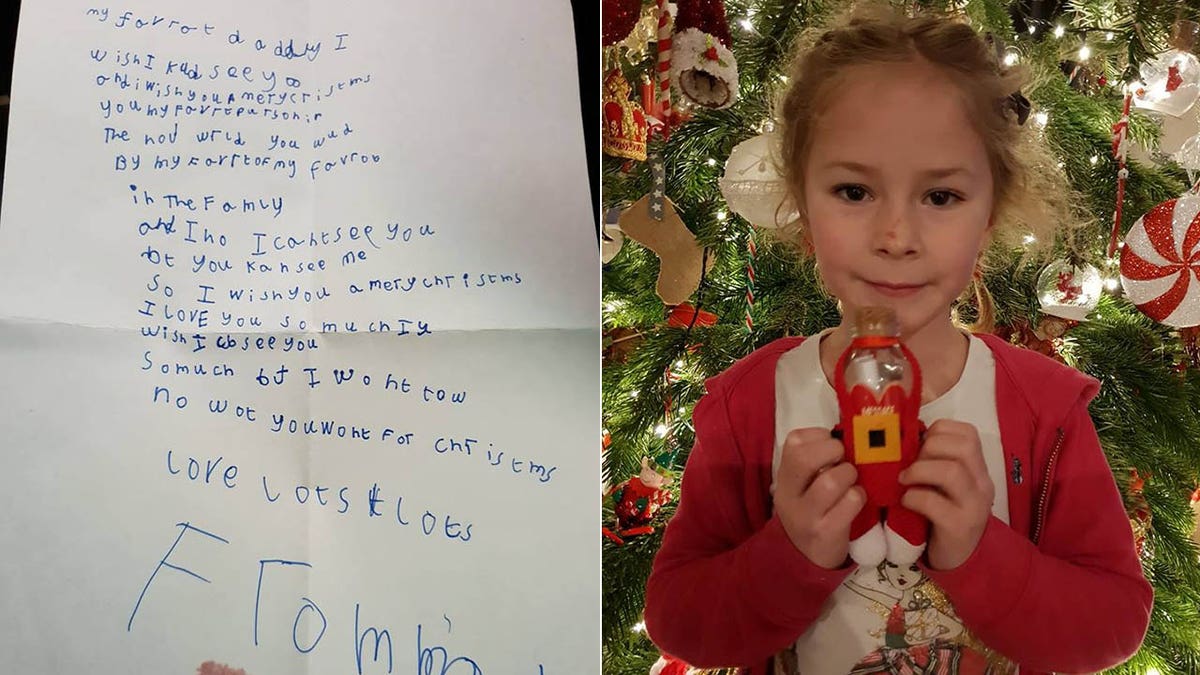 my favrot daddy I
wish I kud see yoo
and i wish you A merycristms
you my favrtpurson in
The hod wrld you wud
By my Favrtof my favrot
in The Famly
and I no I cantsee you
bt you kan see me
so I wish you a mery christms
I LOVE you so much I
wish I see you
so much bt I wont tow
no wot you wont For christms
Love Lots & Lots
From